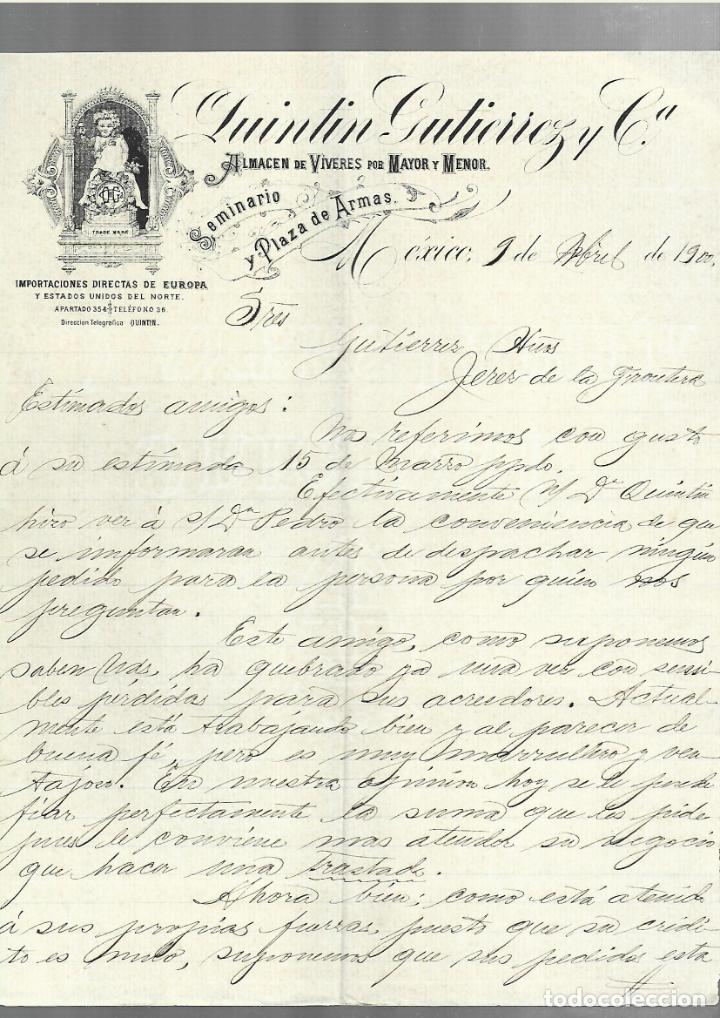 Quintin Gutierrez y Cª
ALMACEN DE VÍVERES POR MAYOR Y MENOR.
Seminario
y Plaza de Armas.
QG
TRADE MARK
México, 9 de Abril de 1900
IMPORTACIONES DIRECTAS DE EUROPA
Y ESTADOS UNIDOS DEL NORTE.
APARTADO 354 TELÉFONO 36.
Direccion Telegrafica QUINTIN.
Sres
Gutierrez Hnos
Jerez de la Frontera
Estimados amigos:
Nos referimos con gusto
á su estimada 15 de Marzo ppdo.
Efectivamente n/ Dn Quintin
hizo ver á s/ Dn Pedro la conveniencia de que
se informaran antes de despachar ningun
pedido para la persona por quien nos
preguntan.
Este amigo, como suponemos
saben Uds, ha quebrado ya una vez con sensi-
bles perdidas para sus acreedores. Actual-
mente está trabajando bien y al parecer de
buena fé, pero es muy marrullero y ven-
tajoso. En nuestra opinion hoy se le puede
fiar perfectamente la suma que les pide
pues le conviene mas atender su negocio
que hacer una trastada.
Ahora bien; como está atenido
á sus propias fuerzas, puesto que su crédi-
to es nulo, suponemos que sus pedidos esta
todocoleccion.net